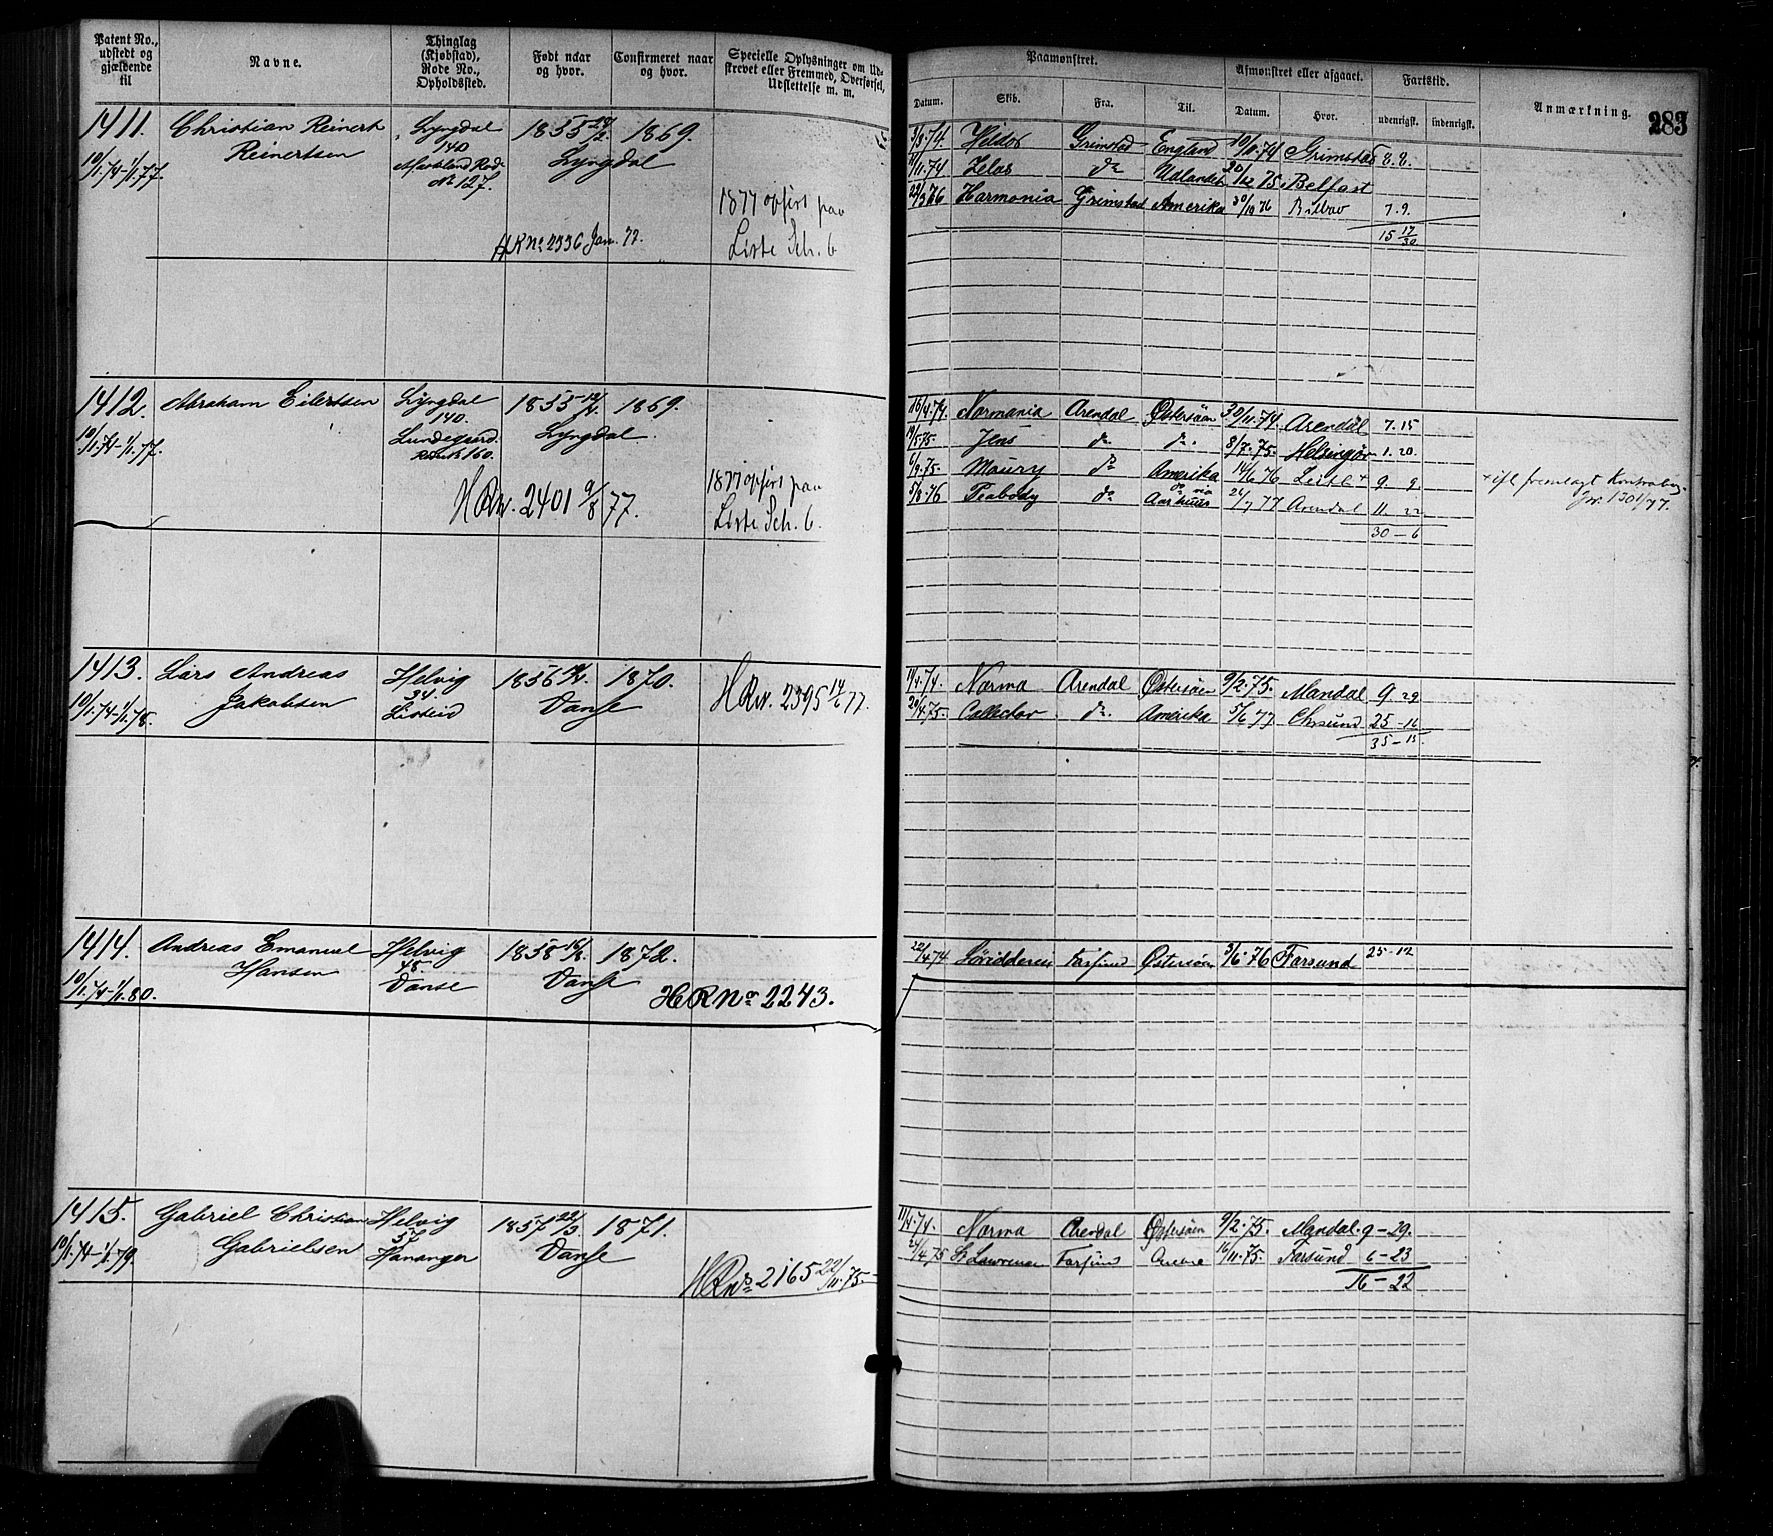 Patent No., udstedt og gjældende til
Navne.
Thinglag (Kjøbstad), Rode No., Opholdssted.
Født naar og hvor.
Confirmeret naar og hvor.
Specielle Oplysninger om Udskrevet eller Fremmed, Overførsel, Udslettelse m. m.
Paamønstret.
Datum.
Skib.
Fra.
Til.
Afmønstret eller afgaaet.
Datum.
Hvor.
Fartstid.
udenrigsk.
indenrigsk.
Anmærkning.
283
1411.
10/1.74-1/1.77.
Christian Reinert
Reinertsen
Lyngdal
140
No 127.
1855 24/2.
Lyngdal
1869.
HR No 2336 Jan. 77.
1877 opført paa
Liste Sch. 6
Grimstad England 10/11.74 Grimstad 8.8.
11/11.74 Zelas do Udlandet 20/12 75. Belfast
22/3 76 Harmonia Grimstad Amerika 30/10 76 Bilbao 7.9.
15 17/30
1412.
10/1.74-1/1.77.
Abraham Eilertsen
Lyngdal
140.
Lundegaard
1855
Lyngdal
1869.
HRNr. 2401 9/8 77.
1877 opført paa
Liste Sch. 6.
16/4.74. Normania Arendal Østersøen 30/11.74. Arendal 7.15
19/5 75. Jens do. do. 8/7.75. Helsingør 1.20.
6/9.75. Maury do Amerika 14/6 76 Leith + 9. 9.
5/8.76 Peabody do Aarhuus 26/7 77 Arendal 11. 22
30-6
+ ifl. fremlagt
Jr. 1301/77.
1413.
10/1.74-1/1.78.
Lars Andreas
Jakobsen
Helvig
34.
Listeid
1856
Vanse
1870.
HRNr. 2395 14/6 77.
11/4.74. Norma Arendal Østersøen 9/2.75. Mandal 9.29
20/4.75. Collector do. Amerika 5/6 77 Chrsund 25-16
35-15.
1414.
10/1.74-1/1.80.
Andreas Emanuel
Hansen
Helvig
48.
Vanse
1858 16/8.
Vanse
1872.
HR No 2243.
22/4 74 Farsund Østersøen 3/6.76 Farsund 25-12
1415.
10/1.74-1/1.79.
Gabriel Christian
Gabrielsen
Helvig
57
Hananger
1857 22/3
Vanse
1871.
HRNo 2165 22/11.75.
11/4.74. Norma Arendal Østersøen 9/2.75. Mandal. 9-29.
24/4 75 St Lawrence Farsund 16/11.75. Farsund 6-23
16-22